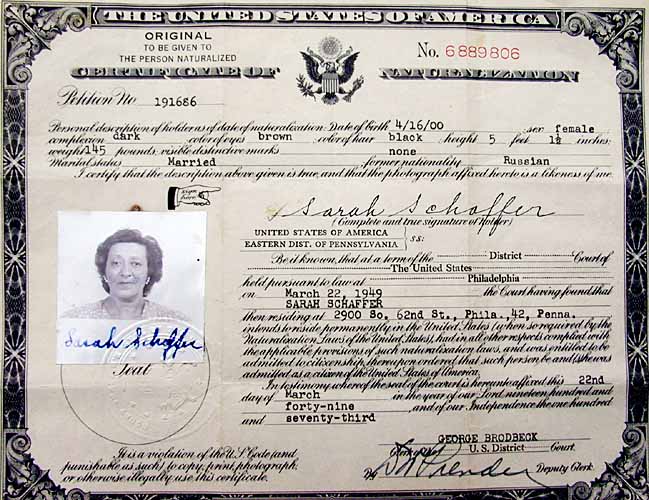 THE UNITED STATES OF AMERICA
ORIGINAL
TO BE GIVEN TO
THE PERSON NATURALIZED
No. 6889806
CERTIFICATE OF NATURALIZATION
Petition No 191686
Personal description of holder as of date of naturalization: Date of birth 4/16/00 sex female
complexion dark color of eyes brown color of hair black height 5 feet 1½ inches;
weight 145 pounds; visible distinctive marks none
Marital status Married former nationality Russian
I certify that the description above given is true, and that the photograph affixed hereto is a likeness of me.
SIGN here
Sarah Schaffer
(Complete and true signature of holder)
UNITED STATES OF AMERICA
EASTERN DIST. OF PENNSYLVANIA } ss:
Be it known, that at a term of the District Court of
The United States
held pursuant to law at Philadelphia
on March 22, 1949 the Court having found that
SARAH SCHAFFER
then residing at 2900 So. 62nd St., Phila. 42, Penna.
intends to reside permanently in the United States (when so required by the
Naturalization Laws of the United States), had in all other respects complied with
the applicable provisions of such naturalization laws, and was entitled to be
admitted to citizenship, thereupon ordered that such person be and (s)he was
admitted as a citizen of the United States of America.
Sarah Schaffer
Seal
In testimony whereof the seal of the court is hereunto affixed this 22nd
day of March in the year of our Lord nineteen hundred and
forty-nine and of our Independence the one hundred
and seventy-third
GEORGE BRODBECK
Clerk of the U. S. District Court.
By Deputy Clerk.
It is a violation of the U.S. Code (and
punishable as such) to copy, print, photograph,
or otherwise illegally use this certificate.